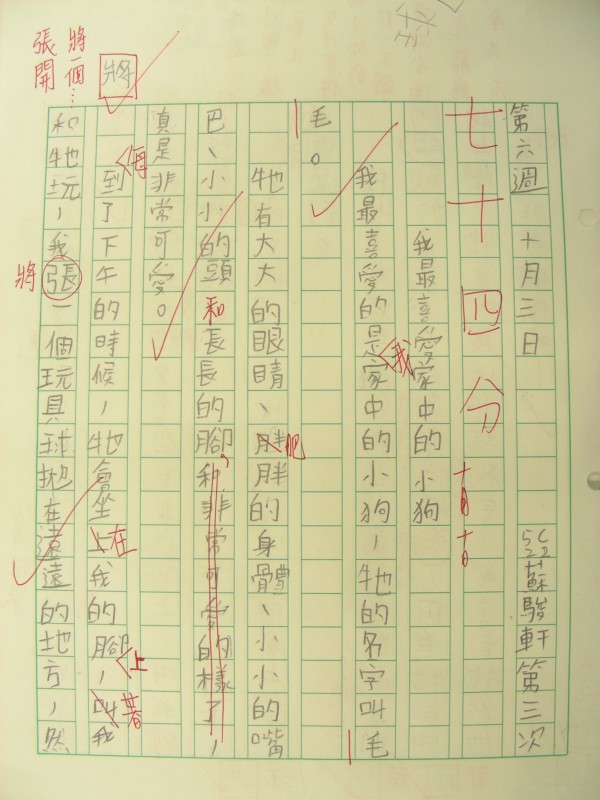 第六週 十月三日 蘇駿軒 第三次
七十四分 十月十日
我最喜愛家中的小狗
我最喜愛的是家中的小狗，牠的名字叫毛
我
毛。
牠有大大的眼睛、胖胖的身體、小小的嘴
肥
巴、小小的頭和長長的腳，和非常可愛的樣了，
真是非常可愛。
到了下午的時候，牠會坐上我的腳，叫我
每
在
上
著
和牠玩，我張一個玩具球拋在遠遠的地方，然
將
將
將一個…
張開